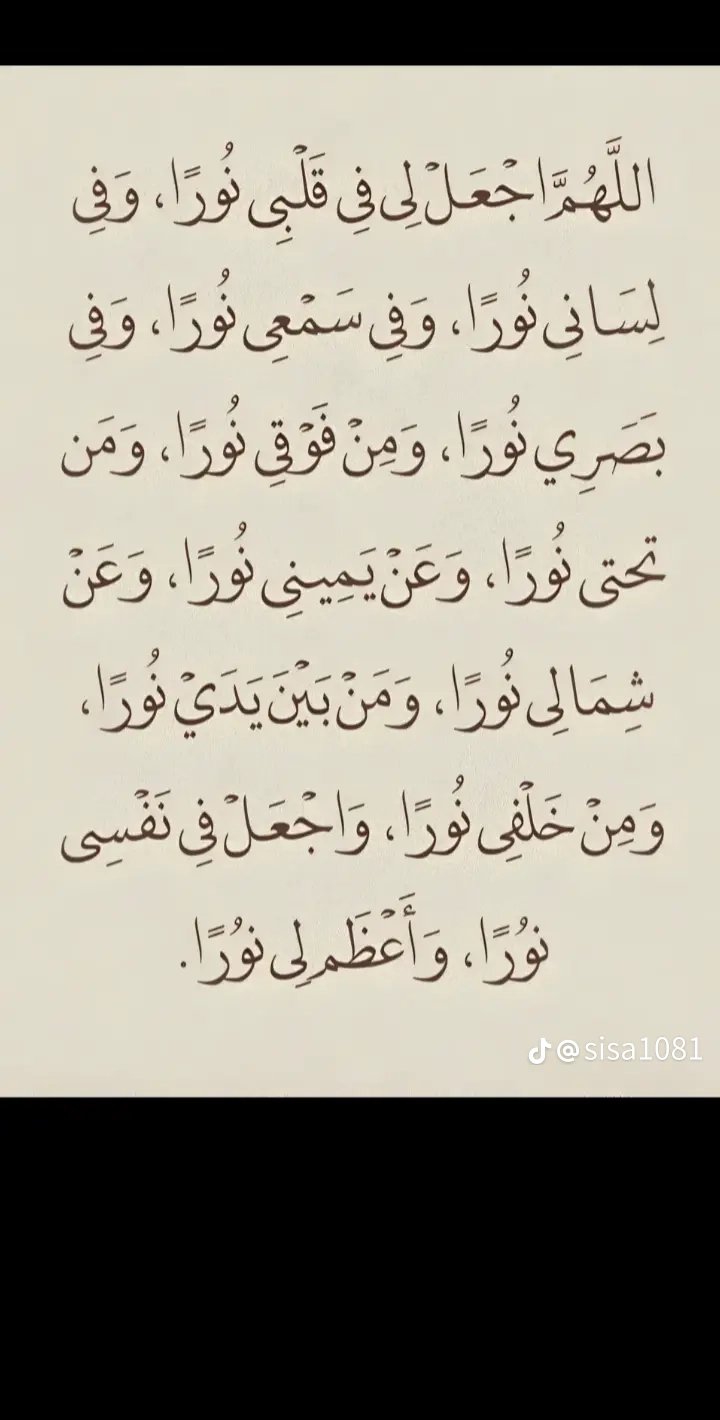 اللَّهُمَّ اجْعَلْ لِي فِي قَلْبِي نُورًا، وَفِي
لِسَانِي نُورًا، وَفِي سَمْعِي نُورًا، وَفِي
بَصَرِي نُورًا، وَمِنْ فَوْقِي نُورًا، وَمَن
تحتى نُورًا، وَعَنْ يَمِينِي نُورًا، وَعَنْ
شِمَالِي نُورًا، وَمَنْ بَيْنَ يَدَيْ نُورًا،
وَمِنْ خَلْفِي نُورًا، وَاجْعَلْ فِي نَفْسِي
نُورًا، وَأَعْظَم لِي نُورًا.
@sisa1081